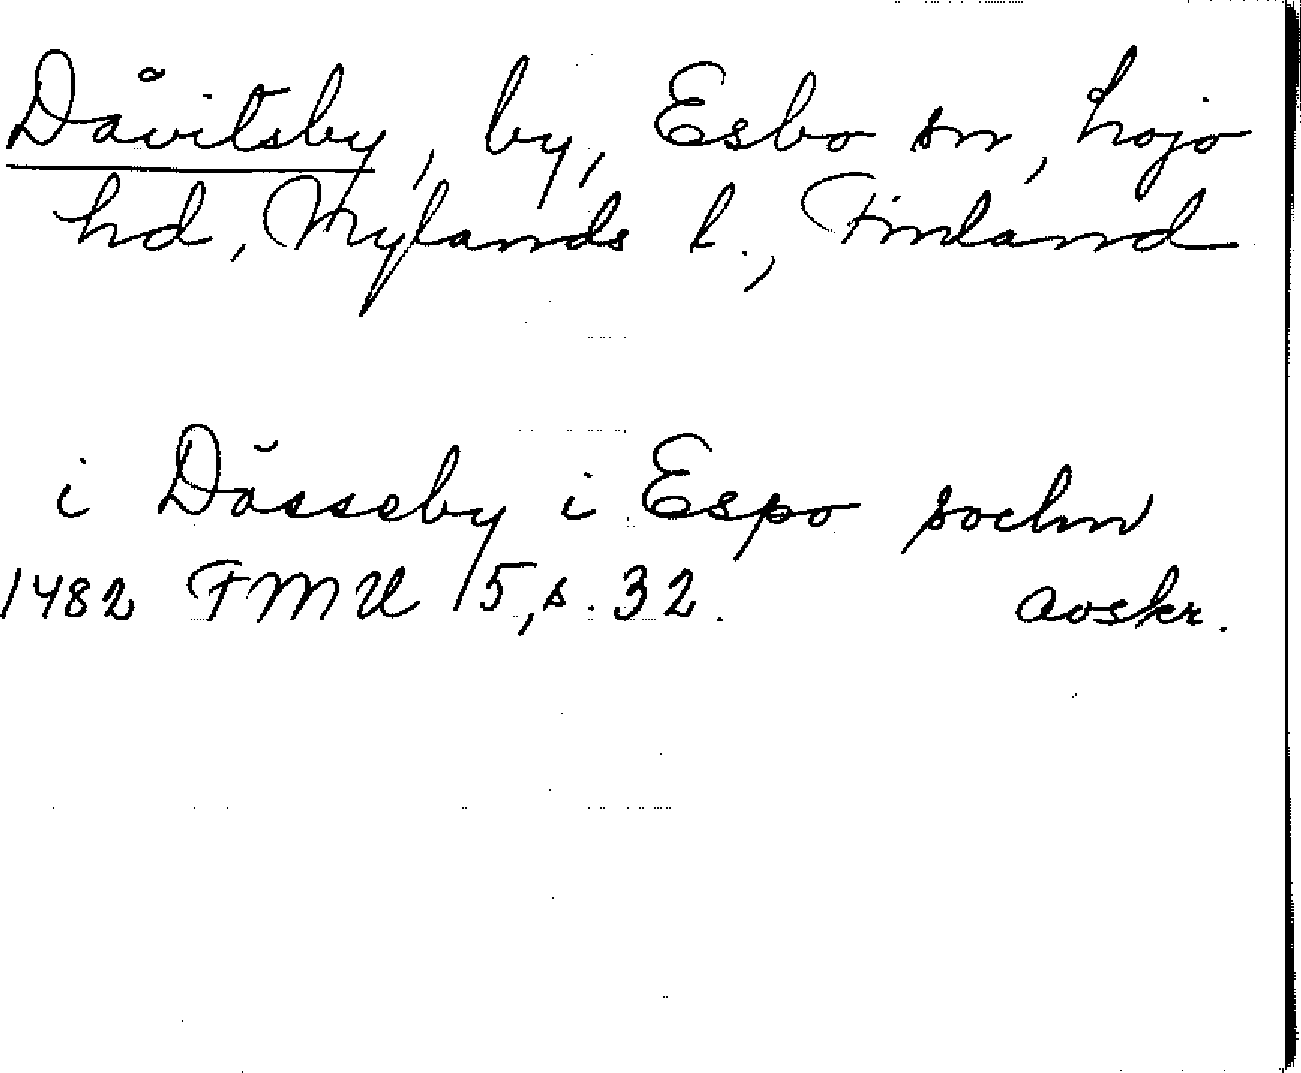 Dåvitsby, by, Esbo sn, Lojo
hd, Nylands l., Finland
i Dăsseby i Espo sochn
1482 FMU 5, s. 32. avskr.